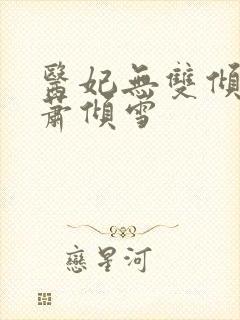 醫妃無雙傾
蕭傾雪
戀星河